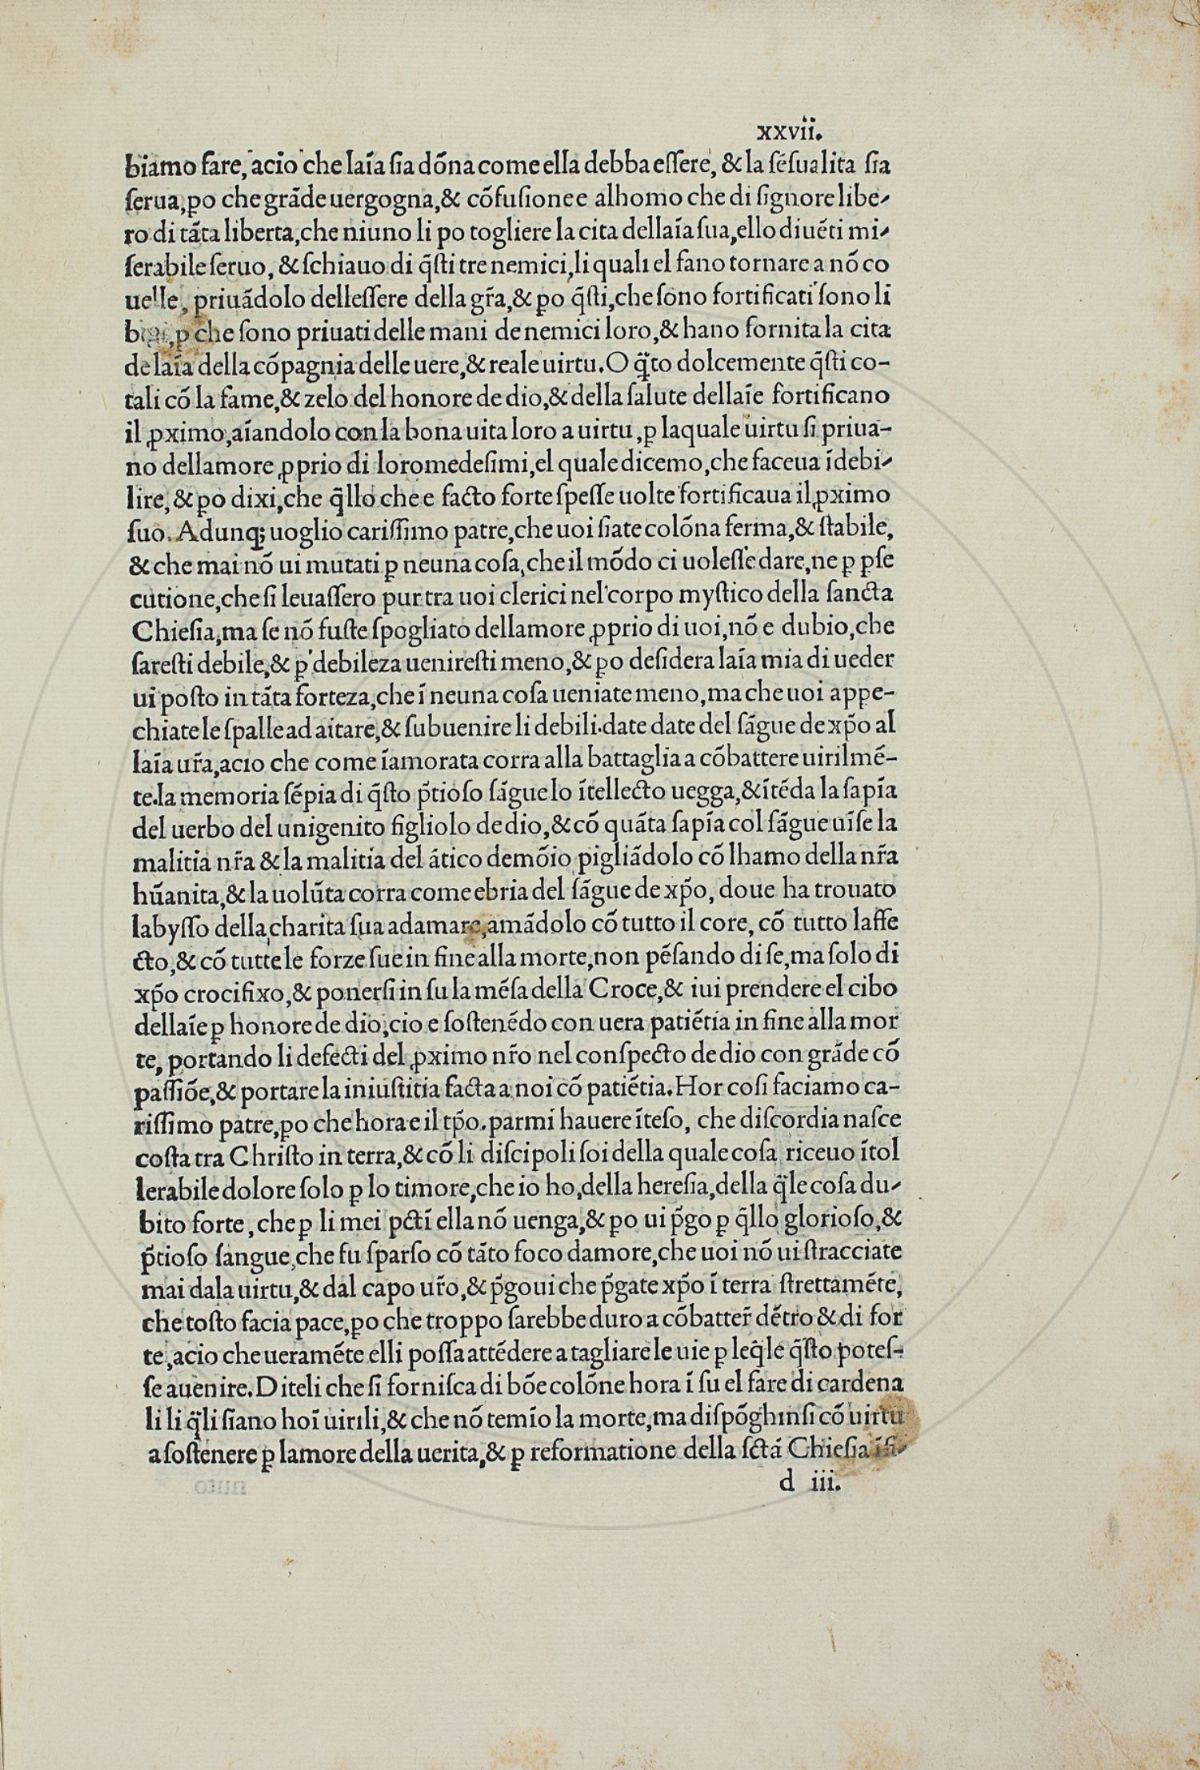 xxvii.
biamo fare, acio che laīa ſia dōna come ella debba eſſere, & la ſēſualita ſia
ſerua,ꝑo che grāde uergogna,& cōfuſione e alhomo che di ſignore libe-
ro di tāta liberta,che niuno li po togliere la cita dellaīa ſua,ello diuēti mi-
ſerabile ſeruo, & ſchiauo di q̄ſti tre nemici,li quali el fano tornare a nō co
uelle, priuādolo delleſſere della gr̄a,& ꝑo q̄ſti,che ſono fortificati ſono li
ꝑ che ſono priuati delle mani de nemici loro,& hano fornita la cita
de laīa della cōpagnia delle uere,& reale uirtu. O q̄to dolcemente q̄ſti co-
tali cō la fame,& zelo del honore de dio,& della ſalute dellaīe fortificano
il ꝓximo,aīandolo con la bona uita loro a uirtu,ꝑ laquale uirtu ſi priua-
no dellamore ꝓprio di loromedeſimi,el quale dicemo,che faceua īdebi-
lire,& ꝑo dixi,che q̄llo che e facto forte ſpeſſe uolte fortificaua il ꝓximo
ſuo. Adunq; uoglio cariſſimo patre,che uoi ſiate colōna ferma,& ſtabile,
& che mai nō ui mutati ꝑ neuna coſa,che il mōdo ci uoleſſe dare,ne ꝑ ꝑſe
cutione,che ſi leuaſſero pur tra uoi clerici nel corpo myſtico della ſancta
Chieſia,ma ſe nō fuſte ſpogliato dellamore ꝓprio di uoi,nō e dubio,che
ſareſti debile,& ꝑ debileza uenireſti meno,& ꝑo deſidera laīa mia di ueder
ui poſto in tāta forteza,che ī neuna coſa ueniate meno,ma che uoi appe-
chiate le ſpalle ad aitare,& ſubuenire li debili.date date del ſāgue de xp̄o al
laīa ur̄a,acio che come īamorata corra alla battaglia a cōbattere uirilmē-
te.la memoria ſēpia di q̄ſto p̄tioſo ſāgue lo ītellecto uegga,& ītēda la ſapīa
del uerbo del unigenito figliolo de dio,& cō quāta ſapīa col ſāgue uīſe la
malitia nr̄a & la malitia del ātico demōio pigliādolo cō lhamo della nr̄a
hūanita,& la uolūta corra come ebria del ſāgue de xp̄o, doue ha trouato
labyſſo della charita ſua adamare,amādolo cō tutto il core, cō tutto laffe
cto,& cō tutte le forze ſue in fine alla morte,non pēſando di ſe,ma ſolo di
xp̄o crocifixo,& ponerſi in ſu la mēſa della Croce,& iui prendere el cibo
dellaīe ꝑ honore de dio,cio e ſoſtenēdo con uera patiētia in fine alla mor
te, portando li defecti del ꝓximo nr̄o nel conſpecto de dio con grāde cō
paſſiōe,& portare la iniuſtitia facta a noi cō patiētia. Hor coſi faciamo ca-
riſſimo patre,ꝑo che hora e il tp̄o.parmi hauere īteſo, che diſcordia naſce
coſta tra Chriſto in terra,& cō li diſcipoli ſoi della quale coſa riceuo ītol
lerabile dolore ſolo ꝑ lo timore,che io ho,della hereſia,della q̄le coſa du-
bito forte, che ꝑ li mei pctī ella nō uenga,& ꝑo ui p̄go ꝑ q̄llo glorioſo,&
p̄tioſo ſangue,che fu ſparſo cō tāto foco damore,che uoi nō ui ſtracciate
mai dala uirtu,& dal capo ur̄o,& p̄goui che p̄gate xp̄o ī terra ſtrettamēte,
che toſto facia pace,ꝑo che troppo ſarebbe duro a cōbatter̄ dētro & di for
te,acio che ueramēte elli poſſa attēdere a tagliare le uie ꝑ leq̄le q̄ſto poteſ-
ſe auenire. Diteli che ſi forniſca di bōe colōne hora ī ſu el fare di cardena
li li q̄li ſiano hoī uirili,& che nō temīo la morte,ma diſpōghinſi cō uirtu
a ſoſtenere ꝑ lamore della uerita,& ꝑ reformatione della ſctā Chieſia īfi-
d iii.